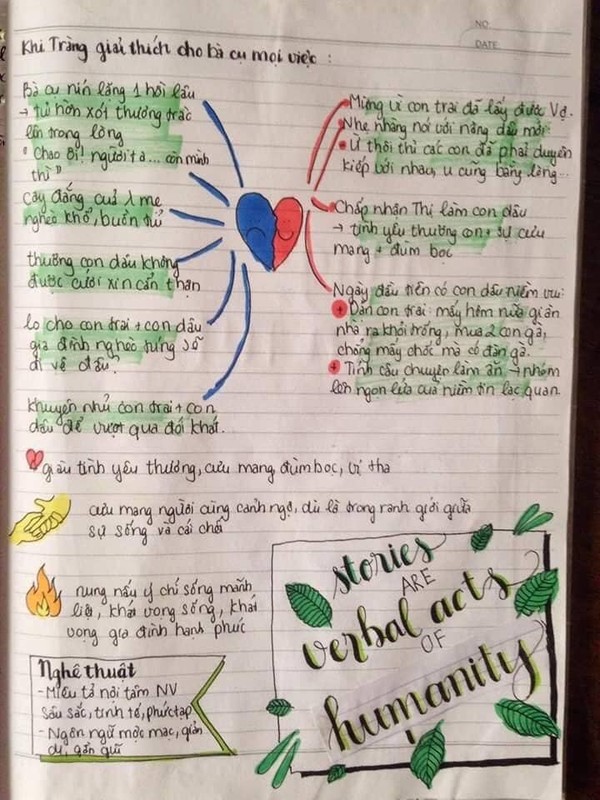 NO.
DATE
Khi Tràng giải thích cho bà cụ mọi việc :
Bà cụ nín lặng 1 hồi lâu
→ tủi hờn xót thương trắc
lên trong lòng
"Chao ôi! người ta ... còn mình
thì"
cay đắng của
mẹ
nghèo khổ, buồn tủi
thương con dâu không
được cưới xin cẩn thận
lo cho con trai + con dâu
gia đình nghèo túng sẽ
đi về đâu?
khuyên nhủ con trai + con
dâu để vượt qua đói khát.
Mừng vì con trai đã lấy được vợ.
Nhẹ nhàng nói với nàng dâu mới:
Ừ thôi thì các con đã phải duyên
kiếp với nhau, u cũng bằng lòng...
Chấp nhận Thị làm con dâu
→ tình yêu thương con + sự cưu
mang + đùm bọc
Ngày đầu tiên có con dâu niềm vui:
+ Dặn con trai: mấy hôm nữa giản
nhà ra khỏi trống, mua 2 con gà,
chẳng mấy chốc mà có đàn gà.
+ Tính câu chuyện làm ăn → nhóm
lên ngọn lửa của niềm tin lạc quan.
giàu tình yêu thương, cưu mang đùm bọc, vị tha
cưu mang người cùng cảnh ngộ, dù là trong ranh giới giữa
sự sống và cái chết
nung nấu ý chí sống mãnh
liệt, khát vọng sống, khát
vọng gia đình hạnh phúc
Nghệ thuật
- Miêu tả nội tâm NV
sâu sắc, tinh tế, phức tạp
- Ngôn ngữ mộc mạc, giản
dị, gần gũi
stories
ARE
verbal acts
OF
humanity